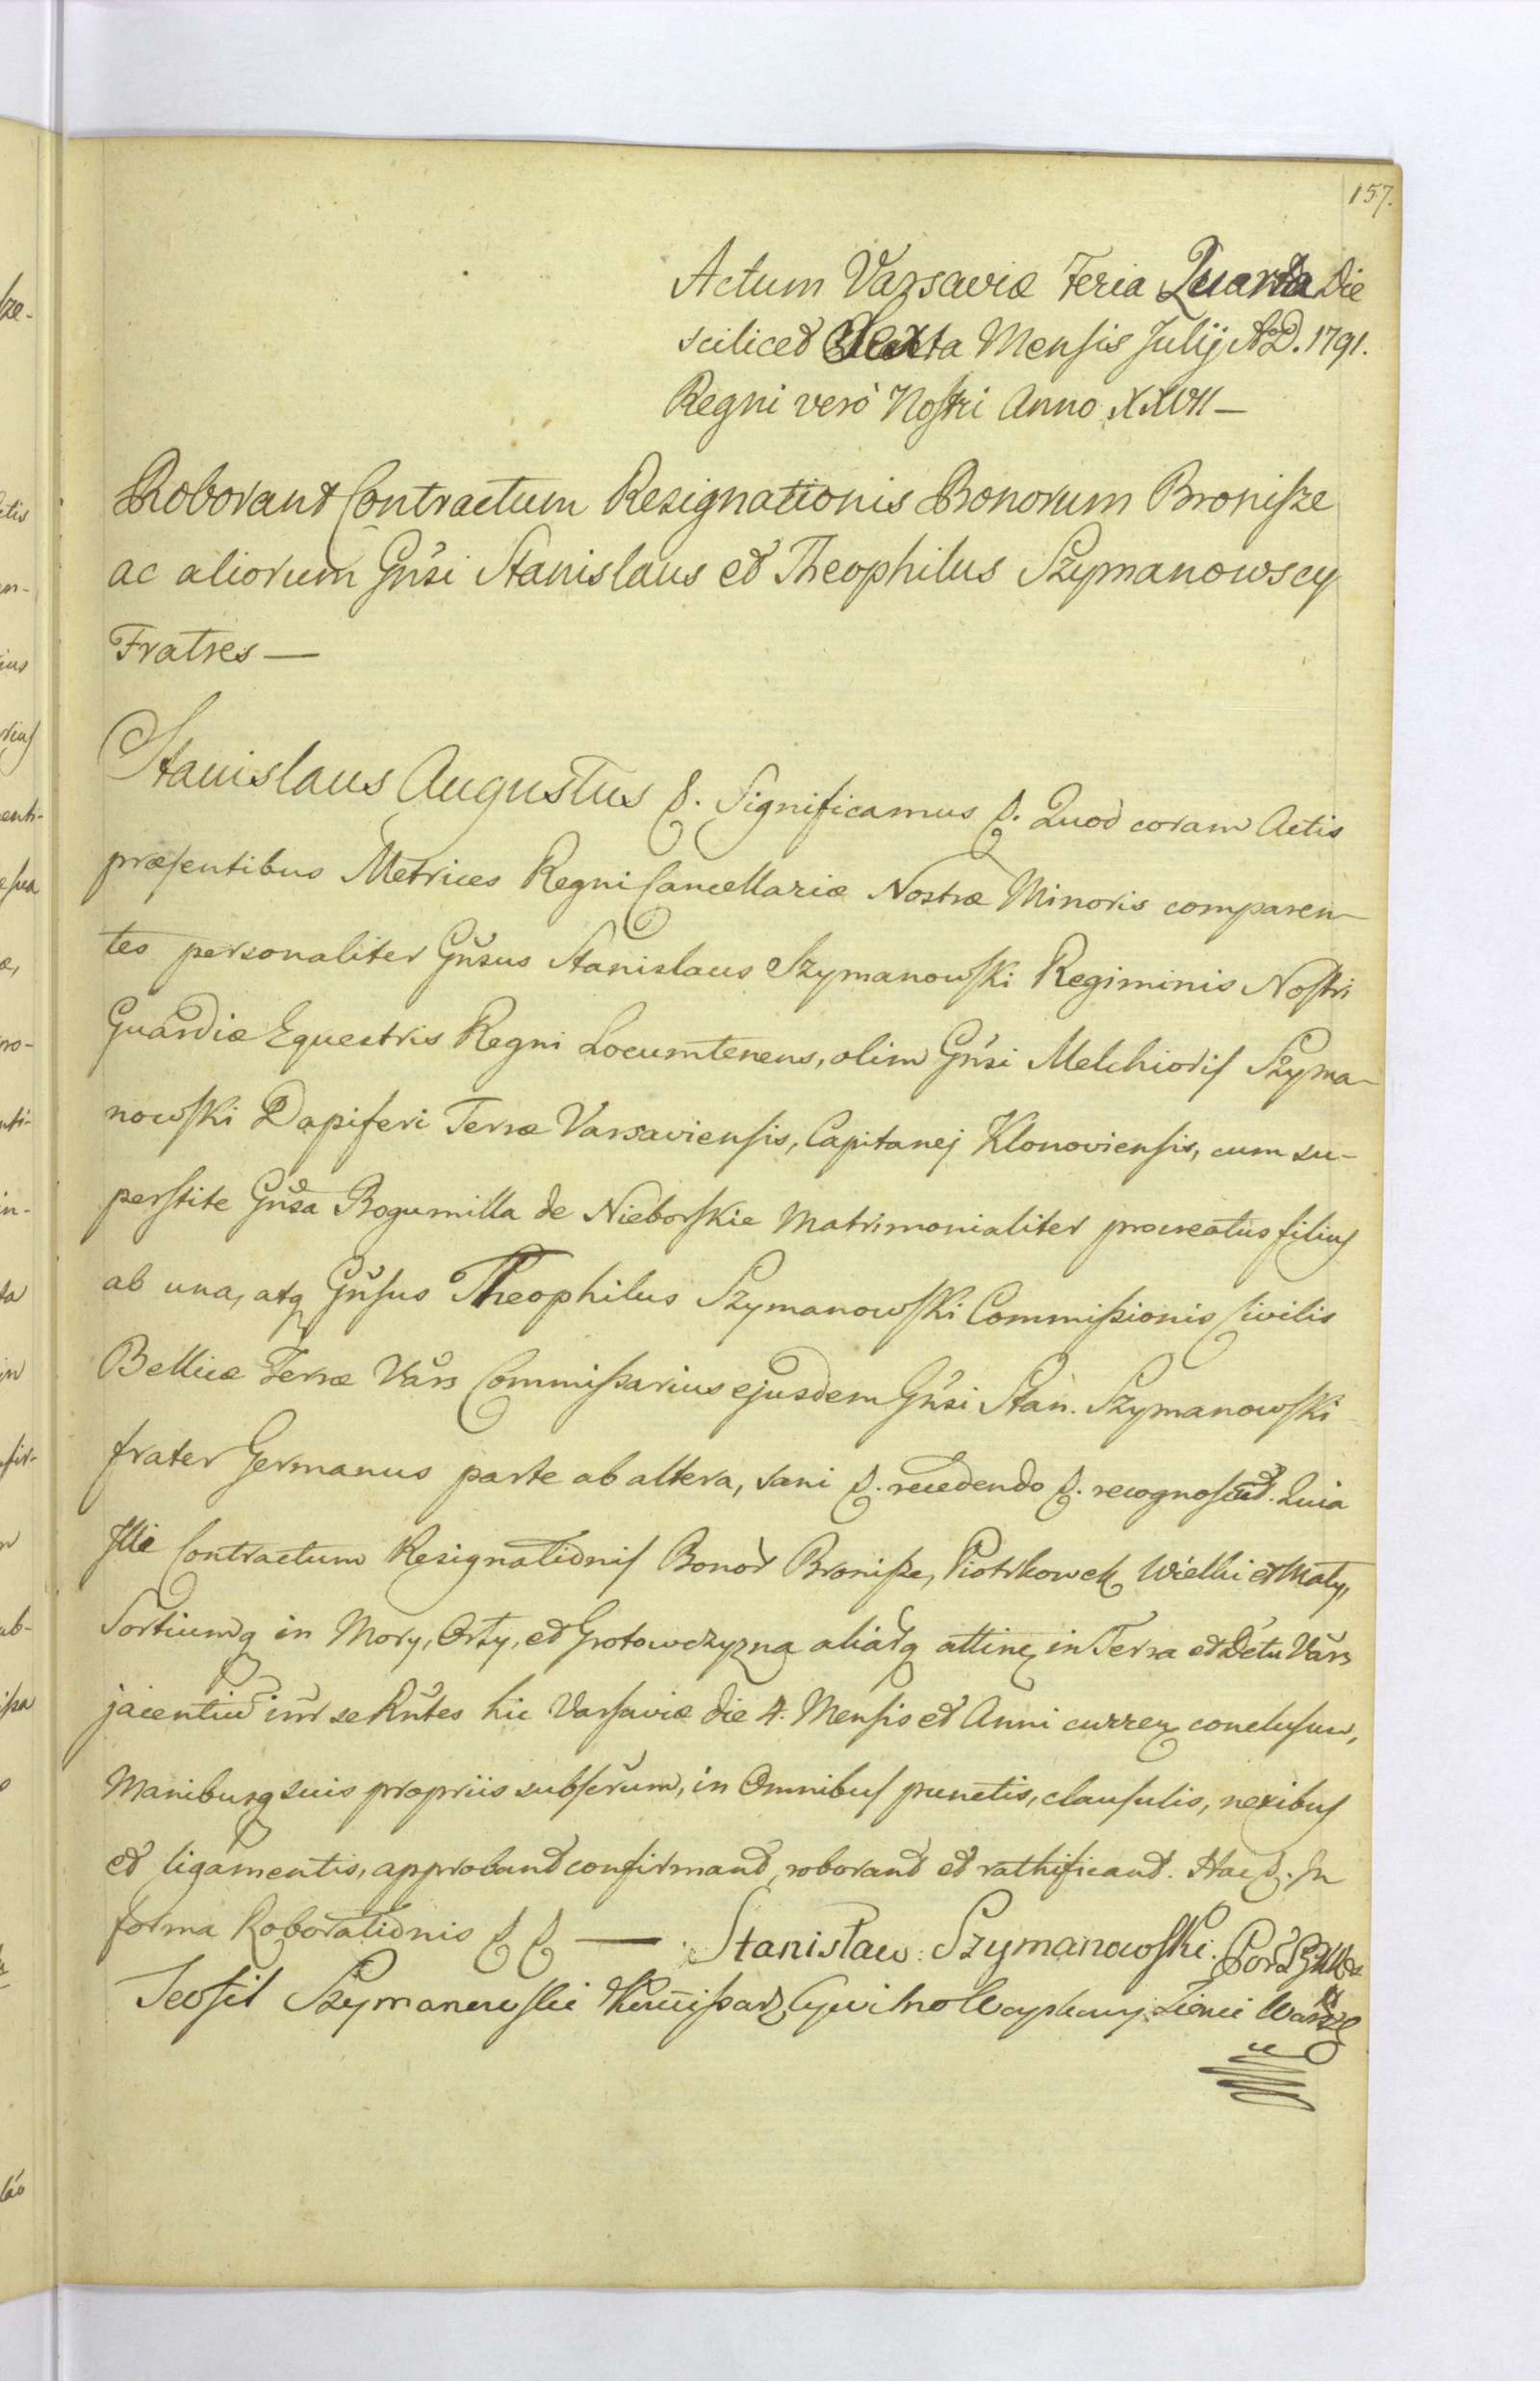 157.
Actum Varsaviæ Feria Quarta Die
scilicet Sexta Mensis Julij A.D. 1791.
Regni verò Nostri Anno XXVII —
Roborant Contractum Resignationis Bonorum Bronisze
ac aliorum Gnsi Stanislaus et Theophilus Szymanowscy
Fratres —
Stanislaus Augustus &. Significamus &. Quod coram Actis
præsentibus Metrices Regni Cancellariæ Nostræ Minoris comparen-
tes personaliter Gnsus Stanislaus Szymanowski Regiminis Nostri
Guardiæ Equestris Regni Locumtenens, olim Gnsi Melchioris Szyma-
nowski Dapiferi Terræ Varsaviensis, Capitanej Klonoviensis, cum su-
perstite Gnsa Bogumilla de Nieborskie Matrimonialiter procreatus filius
ab una, atq Gnsus Theophilus Szymanowski Commissionis Civilis
Bellicæ Terræ Vars Commissarius ejusdem Gnsi Stan. Szymanowski
frater Germanus parte ab altera, sani &. recedendo &. recognoscut. Quia
Illi Contractum Resignationis Bonor Bronisze, Piotrkowek Wielki et Mały,
Sortiumq in Mory, Orty, et Grotowczyzna aliarq attinen in Terra et Dctu Vars
jacentiu intr se Rntes hic Varsaviæ die 4. Mensis et Anni curren conclusum,
Manibusq suis propriis subscrum, in Omnibus punctis, clausulis, nexibus
et ligamentis, approband confirmand, roborand et rathificand. Hac &. In
forma Roborationis && — Stanisław Szymanowski Por
Teofil Szymanowski Kommissarz Cywilno Woyskowy Ziemi Warsz